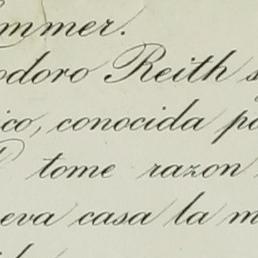 mmer.
odoro Reith s
ico, conocida po
tome razon
eva casa la m